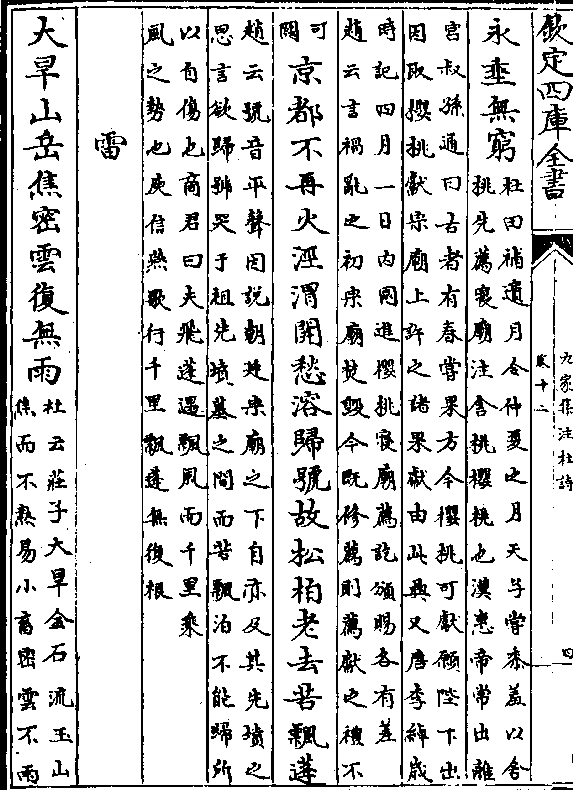 欽定四庫全書
九家集注杜詩
卷十二
四
永垂無窮
杜田補遺月令仲夏之月天子嘗黍羞以含
桃先薦寢廟注含桃櫻桃也漢惠帝常出離
宮叔孫通曰古者有春嘗果方今櫻桃可獻願陛下出
因取櫻桃獻宗廟上許之諸果獻由此興又唐李綽歲
時記四月一日内園進櫻桃寢廟薦訖頒賜各有差
趙云言禍亂之初宗廟焚毀今既修薦則薦獻之禮不
可
闕
京都不再火涇渭開愁容歸號故松柏老去苦飄蓬
趙云號音平聲因說朝廷宗廟之下自亦及其先墳之
思言欲歸號哭于祖先墳墓之間而苦飄泊不能歸所
以自傷也商君曰夫飛蓬遇飄風而千里乘
風之勢也庾信燕歌行千里飄蓬無復根
雷
大旱山岳焦密雲復無雨
杜云莊子大旱金石流土山
焦而不熱易小畜密雲不雨